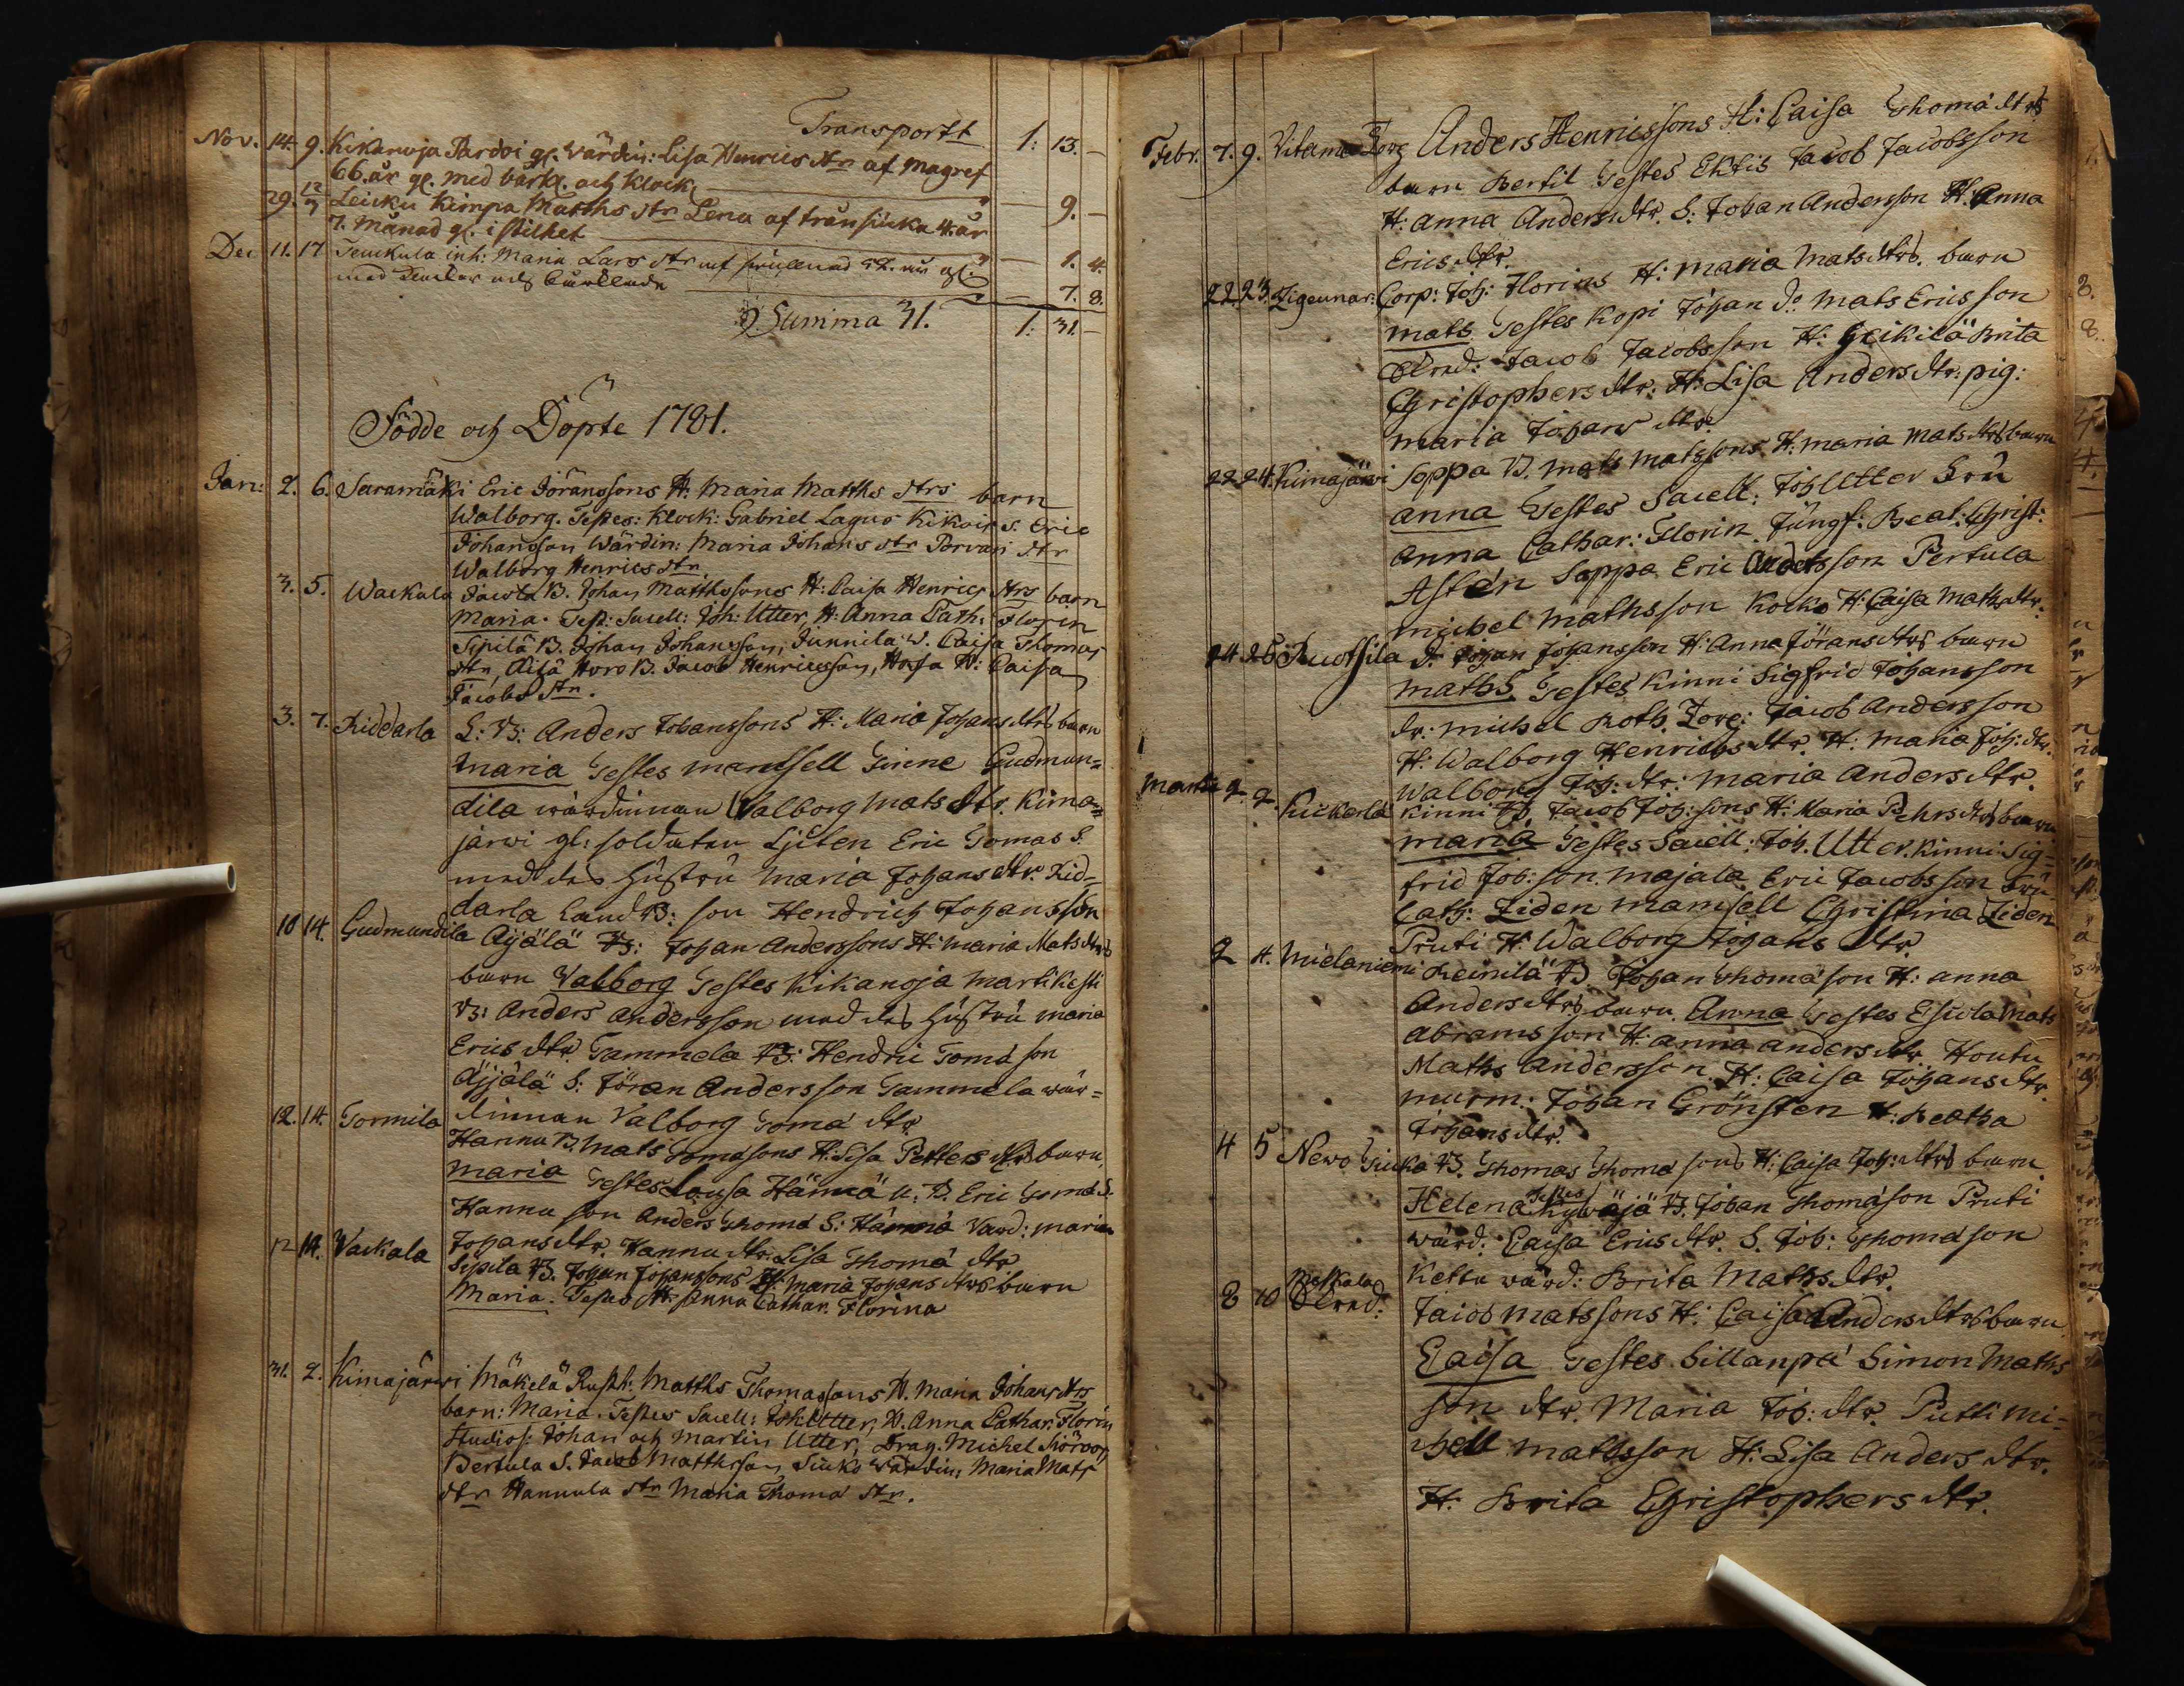 Transportt 1: 13. –
Nov. 14. 9. Kikanoja Pardoi gl. Wärdin: Lisa Henrics dtr af magref
66. år gl. med bårkl. och Klock. – 9. –
29. Leicku Kimpa Matths dtr Lena af 4. år
7. månad gl. i stilhet – 1. 4.
Dec 11. 17 Teuckula inh: Maria Lars dtr af
med 7. 8.
Summa 31. 1: 31. –
Födde och Döpte 1781.
Jan: 2. 6. Saramäki Eric Jöranssons H: Maria Matths dtrs barn
Walborg. Testes: Klock: Gabriel Lagus Kikois S. Eric
Johansson Wärdin: Maria Johans dtr Porvari dtr
Walborg Henrics dtr
3. 5. Wackala Jacola B. Johan Matthssons H: Caisa Henrics dtrs barn
Maria. Test: Sacell: Joh: Utter, H: Anna Cath: Florin
Sipilä B. Johan Johansson, Junnila W. Caisa Thomas
dtr, Horo B. Jacob Henricsson, H: Caisa
Jacobs dtr.
3. 7. Riddarla L: B: Anders Johanssons H: Maria Johans dtrs barn
Maria Testes mamsell Gudmun=
dila wärdinnan Walborg Mats dtr. Kima=
järwi gl: soldaten Eric Tomas S.
med des hustru Maria Johans dtr. Rid=
darla Land B: son Hendrich Johansson
10 14. Gudmundila Äijälä B: Johan Anderssons H: Maria Mats dtrs
barn Valborg Testes Kikanoja Martikesti
B: Anders Andersson med des hustru Maria
Erics dtr. Tammela B: Hendric Toma son
Äijälä S: Jöran Andersson Tammela wär=
dinnan Valborg Toma dtr
12. 14. Tormila Hannu B. Mats Tomasons H: Lisa Petters dtrs barn,
Maria Testes Hämä U. B. Eric Toma S.
Hannu son Anders Thoma S: Värd: Maria
Johans dtr. Hannu dtr. Lisa Thoma dtr
12 14. Vackala Sipila B. Johan Johanssons H: Maria Johans dtrs barn
Maria. Testes H: Anna Cathar. Florina
31. 2. Kimajärwi Mäkelä Rusth: Matths Thomassons H. Maria Johans dtrs
barn: Maria. Testes Sacell: Joh: Utter, H. Anna Cathar. Florin
Studios: Johan och Martin Utter, Drag. Michel
Pertula S. Jacob Matthsson, Wärdin: Maria Mats
dtr Hannula dtr Maria Thoma dtr.
Febr. 7. 9. Vitama Torg Anders Henricssons H: Caisa Thoma dtrs
barn Bertil Testes Ektis Jacob Jacobsson
H: Anna Anders dtr. S: Johan Andersson H: Anna
Erics dtr.
22. 23. Zigeunar: Corp: Joh: Florins H: Maria Mats dtrs. barn
Mats Testes Kopi Johan Do Mats Ericsson
Jacob Jacobsson H: Heikilä Brita
Christophers dtr. H: Lisa Anders dtr: pig:
Maria Johans dtr
22 24. Kimajärwi Soppa B. Mats Matssons H: Maria Mats dtrs barn
Anna Testes Sacell: Joh Utter Fru
Anna Cathar: Florin. Jungf: Beat: Christ:
Asten Soppa Eric Andersson Pertula
Michel Mathsson Kocko H: Caisa Maths dtr.
24 25 Ruotsila Dr Johan Johansson H: Anna Jörans dtrs barn
Maths Testes Kinni Sigfrid Johansson
dr: Michel Roth. Torg: Jacob Andersson
H: Walborg Henricks dtr. H: Maria Joh: dtr.
Walborg Joh: dtr: Maria Anders dtr.
Martii 2. 2. Kickerlä Kinni B. Jacob Joh: sons H: Maria Pehrs dtrs barn
Maria Testes Sacell: Joh. Utter. Kinni Sig=
frid Joh: son. Majala Eric Jacobsson Fru
Cath: Ziden Mamsell Christina Ziden
Pruti H: Walborg Johans dtr
2 4. Mielaniemi Keinilä B Johan Thoma son H: Anna
Anders dtrs barn. Anna Testes Esiola Mats
Abramsson H: Anna Anders dtr Houtu
Maths Andersson. H: Caisa Johans dtr.
murm: Johan Grönsten H: Beatha
Johans dtr.
4 5 Newo B. Thomas Thoma sons H: Caisa Joh: dtrs barn
Helena Testes B. Johan Thomason Pruti
wärd: Caisa Erics dtr. S. Joh: Thomason
Kettu wärd: Brita Maths dtr.
8 10 Jacob Matssons H: Caisa Anders dtrs barn
Caisa Testes Sillanpä Simon Maths
son dtr. Maria Joh: dtr. Putti Mi=
chell Mathsson H: Lisa Anders dtr.
H: Brita Christophers dtr.